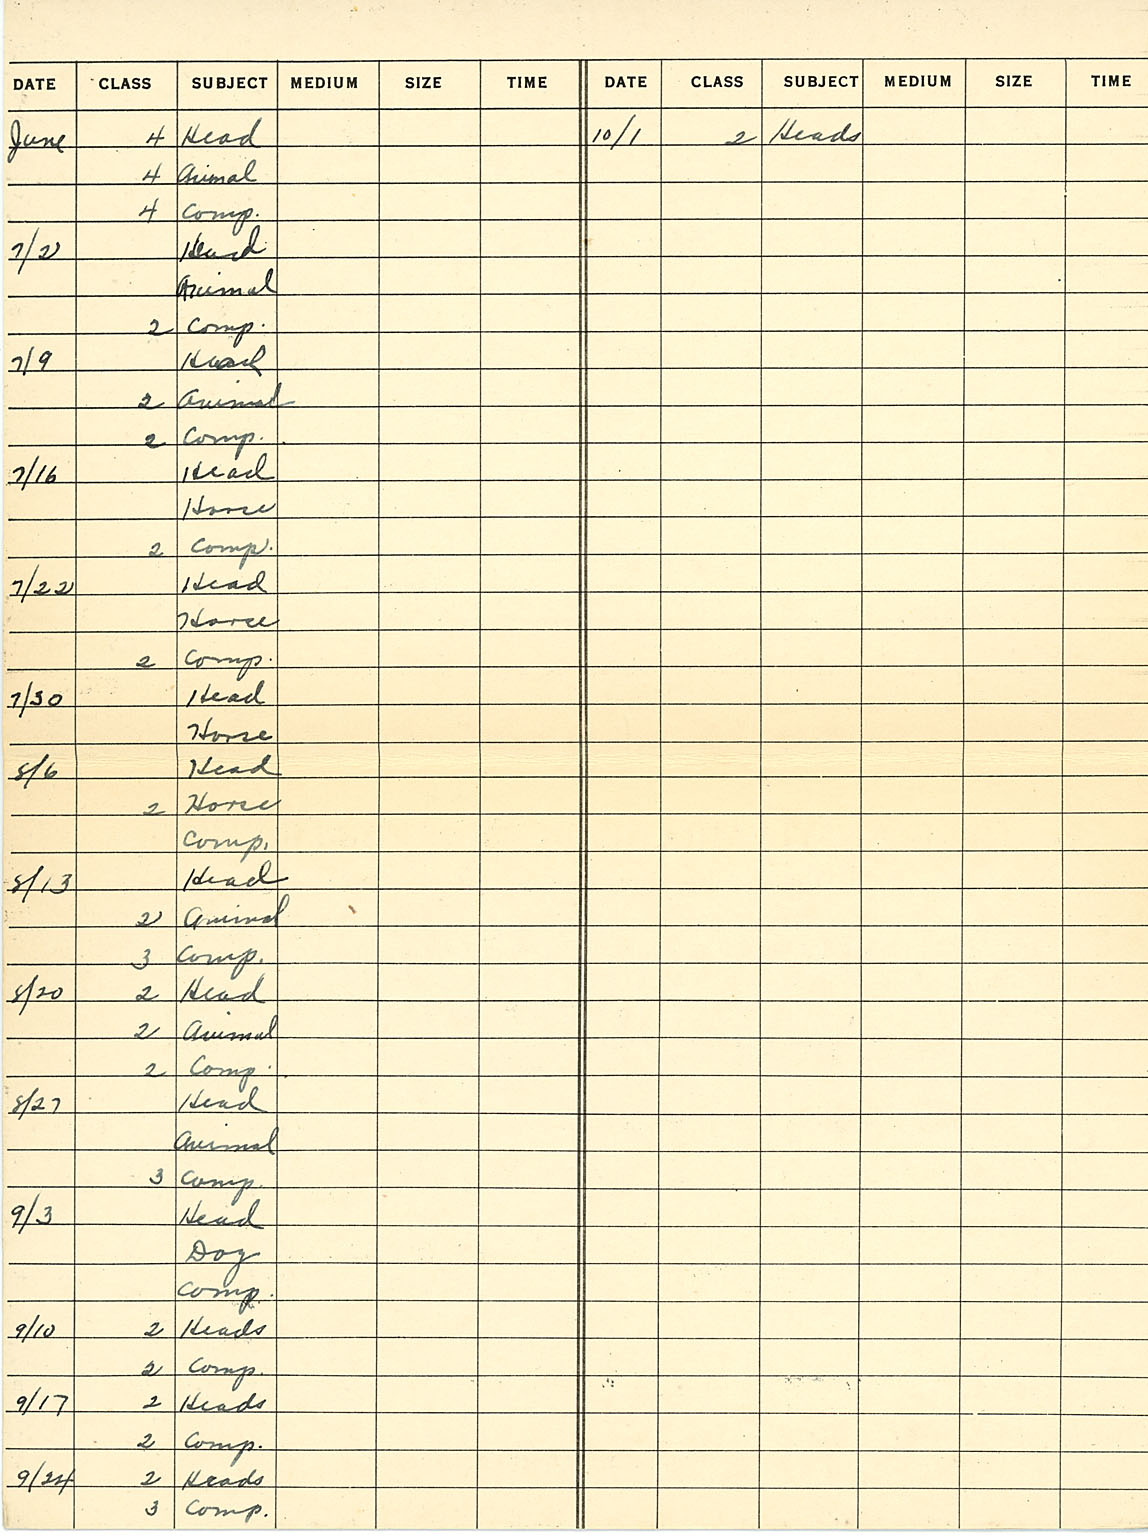 DATE CLASS SUBJECT MEDIUM SIZE TIME DATE CLASS SUBJECT MEDIUM SIZE TIME
June 4 Head 10/1 2 Heads
4 Animal
4 Comp.
7/2 Head
Animal
2 Comp.
7/9 Head
2 Animal
2 Comp.
7/16 Head
Horse
2 Comp.
7/22 Head
Horse
2 Comp.
7/30 Head
Horse
8/6 Head
2 Horse
Comp.
8/13 Head
2 Animal
3 Comp.
8/20 2 Head
2 Animal
2 Comp.
8/27 Head
Animal
3 Comp.
9/3 Head
Dog
Comp.
9/10 2 Heads
2 Comp.
9/17 2 Heads
2 Comp.
9/24 2 Heads
3 Comp.